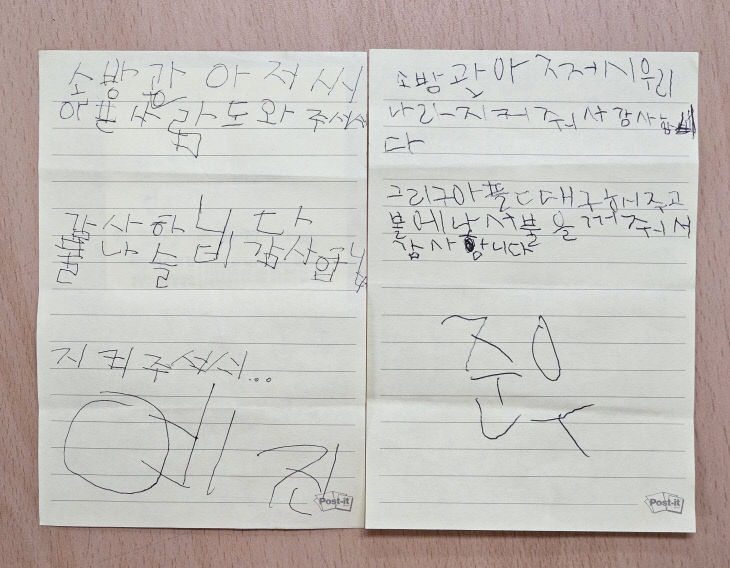 소방관 아저씨
아플 사람 도와 주셔서
감사하니다
불나슬데 감사합니
지켜주셔서...
예진
Post-it
소방관아저씨우리
나라 지켜줘서감사합
다
그리구아플 때구해주고
불에날서불을꺼줘서
감사합니다
준
Post-it